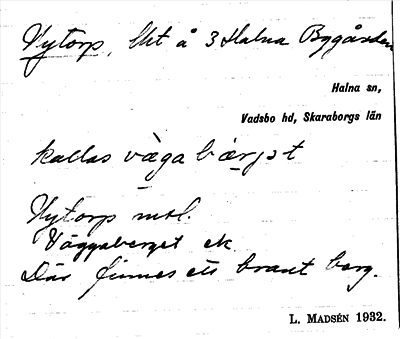 Nytorp, lht å 3 Halna Bygården
Halna sn,
Vadsbo hd, Skaraborgs län
kallas vä̀ga bær̩jət
Nytorp mtl.
Väggaberget ek.
Där finnes ett brant berg.
L. MADSÉN 1932.